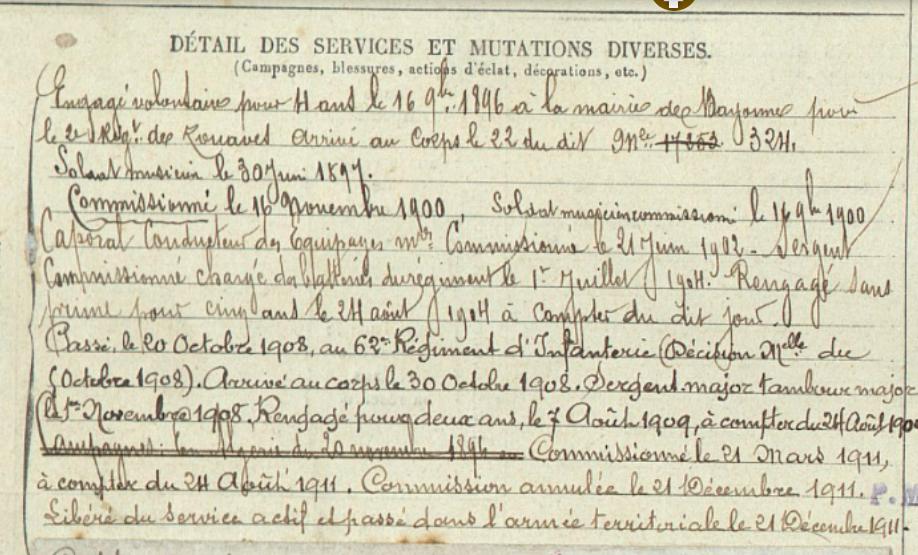 DÉTAIL DES SERVICES ET MUTATIONS DIVERSES.
(Campagnes, blessures, actions d'éclat, décorations, etc.)
Engagé volontaire pour 4 ans le 16 9bre 1896 à la mairie de Bayonne pour
le 2e Régt. de Zouaves arrivé au Corps le 22 du dit No Mle 324.
Soldat musicien le 30 Juin 1897.
Commissionné le 16 Novembre 1900, Soldat musicien commissionné le 16 9bre 1900
Caporal Conducteur des Equipages mres Commissionné le 21 Juin 1902 - Sergent
Commissionné chargé des du régiment le 1er Juillet 1904. Rengagé sans
prime pour cinq ans le 24 août 1904 à compter du dit jour.
Passé, le 20 Octobre 1908, au 62e Régiment d'Infanterie (Décision Melle du
Octobre 1908). Arrivé au corps le 30 Octobre 1908. Sergent major tambour major
le 1er Novembre 1908. Rengagé pour deux ans, le 7 Août 1909, à compter du 24 Août 190
Campagnes: En Algérie du 20 novembre 1896 au Commissionné le 21 Mars 1911,
à compter du 24 Août 1911. Commission annulée le 21 Décembre 1911. P.M
Libéré du service actif et passé dans l'armée territoriale le 21 Décembre 1911.